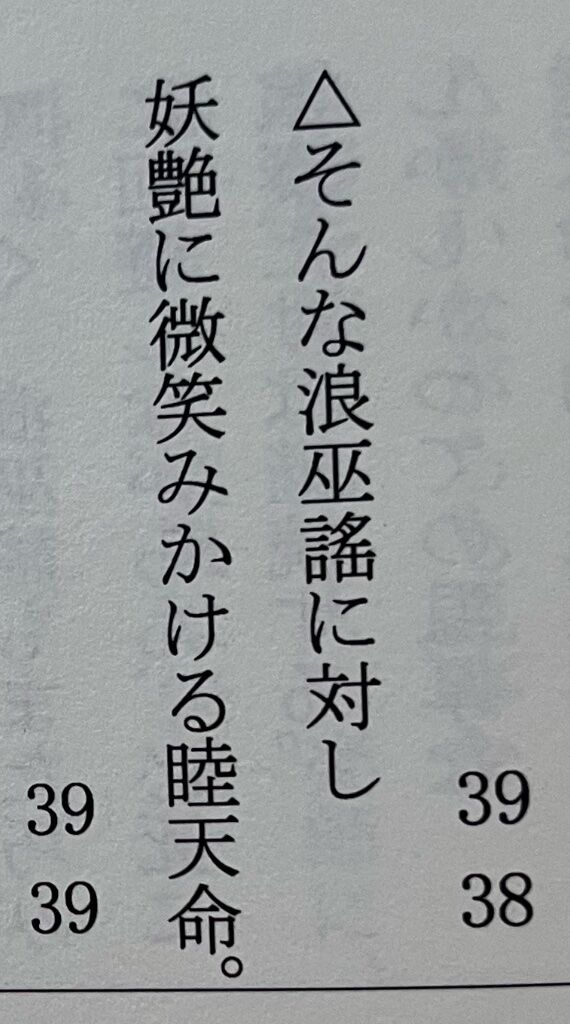 39
38
△そんな浪巫謠に対し
妖艶に微笑みかける睦天命。
39
39